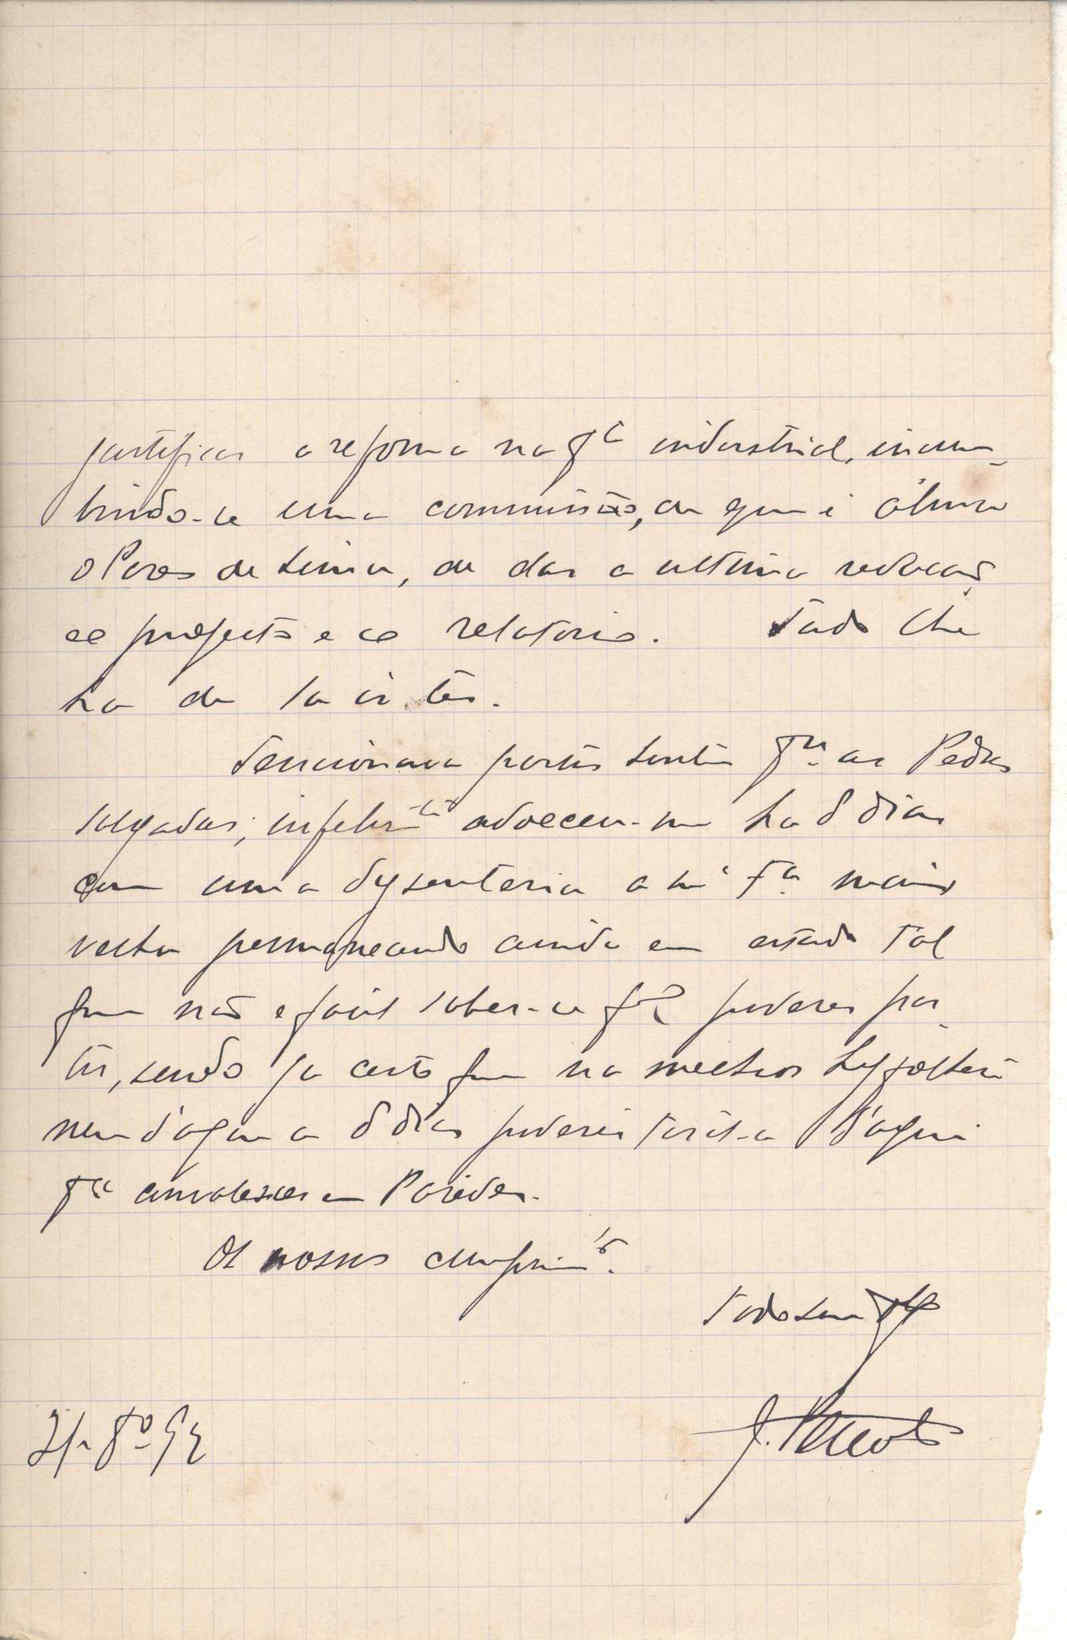 justificar a reforma na pte industrial, incum-
bindo-se uma commissão, de que é alma
o Pires de Lima, de dar a ultima redacção
ao projecto e ao relatorio. Tudo lhe
ha de la ir ter.
Tencionava partir tambem pra as Pedras
Salgadas; infelizmte adoeceu-me ha 8 dias
com uma dysenteria a mª fª mais
velha permanecendo ainda em estado tal
que não é facil saber-se qdo poderei par
tir, sendo já certo que na melhor hypothese
nem d'aqui a 8 dias poderei tiral-a d'aqui
pª convalescer em Paredes.
Os nossos cumprimtos.
Todo seu
J.
21-8º-92